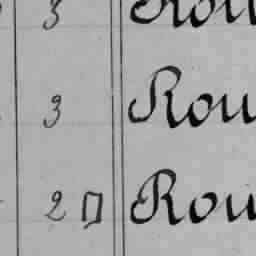 3 Rou
3 Rou
2 □ Rou